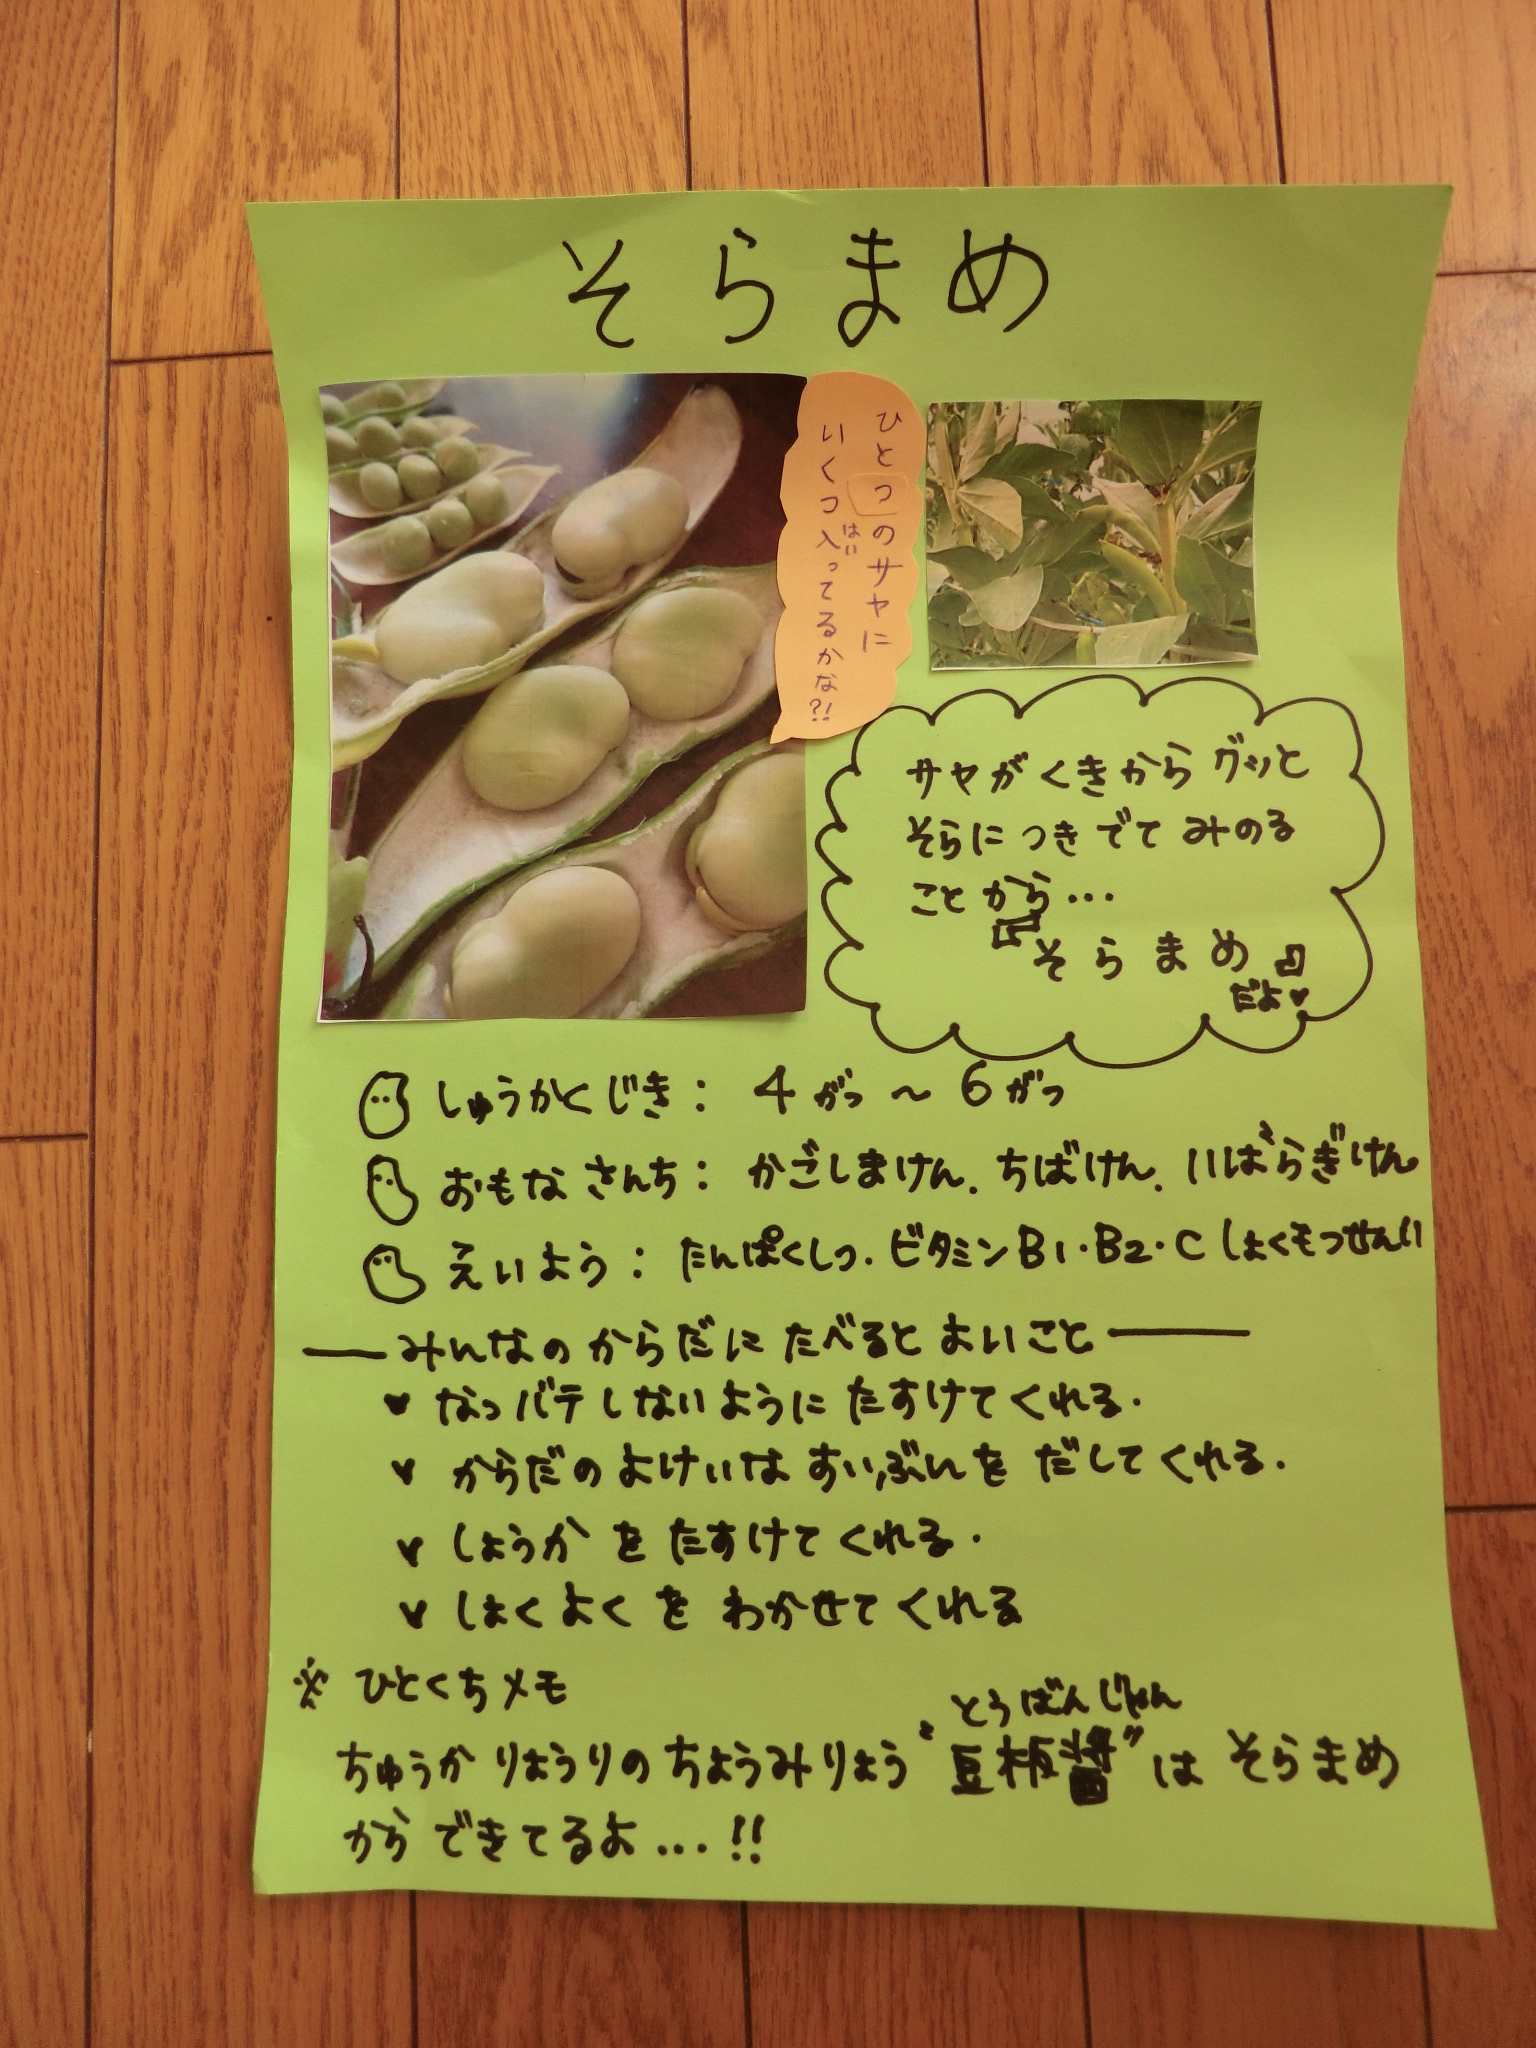 そらまめ
ひとつのサヤに
いくつ入ってるかな?!
はい
サヤがくきからグッと
そらにつきでてみのる
ことから…
「そらまめ」
だよ♥
しゅうかくじき: 4がつ〜6がつ
おもなさんち: かごしまけん、ちばけん、いばらぎけん
えいよう: たんぱくしつ・ビタミンB1・B2・C しょくもつせんい
みんなのからだにたべるとよいこと
♥ なつバテしないようにたすけてくれる。
♥ からだのよけいなすいぶんをだしてくれる。
♥ しょうかをたすけてくれる。
♥ しょくよくをわかせてくれる
※ ひとくちメモ
とうばんじゃん
ちゅうかりょうりのちょうみりょう“豆板醤”はそらまめ
からできてるよ…!!